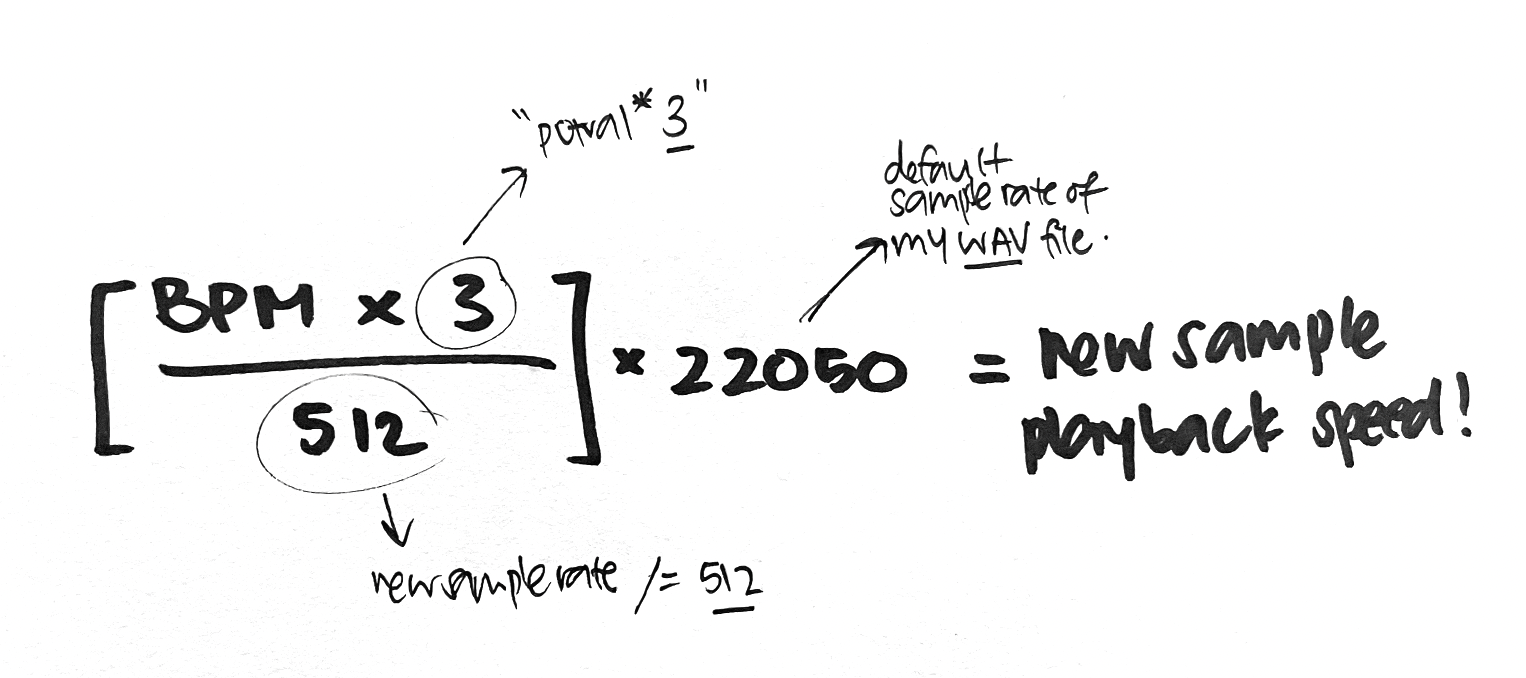 "potval * 3"
default
sample rate of
my WAV file.
[BPM x 3 / 512] x 22050 = new sample
playback speed!
newsamplerate /= 512